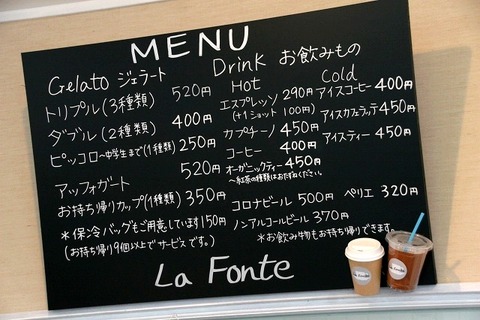 MENU
Gelato ジェラート
トリプル(3種類) 520円
ダブル(2種類) 400円
ピッコロ〜中学生まで(1種類) 250円
アッフォガート 520円
お持ち帰りカップ(1種類) 350円
*保冷バッグもご用意しています150円
(お持ち帰り9個以上でサービスです。)
Drink お飲みもの
Hot
エスプレッソ 290円
(+1ショット 100円)
カプチーノ 450円
コーヒー 400円
オーガニックティー 450円
〜紅茶の種類はおたずねください。
Cold
アイスコーヒー 400円
アイスカフェラッテ 450円
アイスティー 450円
コロナビール 500円 ペリエ 320円
ノンアルコールビール 370円
*お飲み物もお持ち帰りできます。
La Fonte
La Fonte
La Fonte